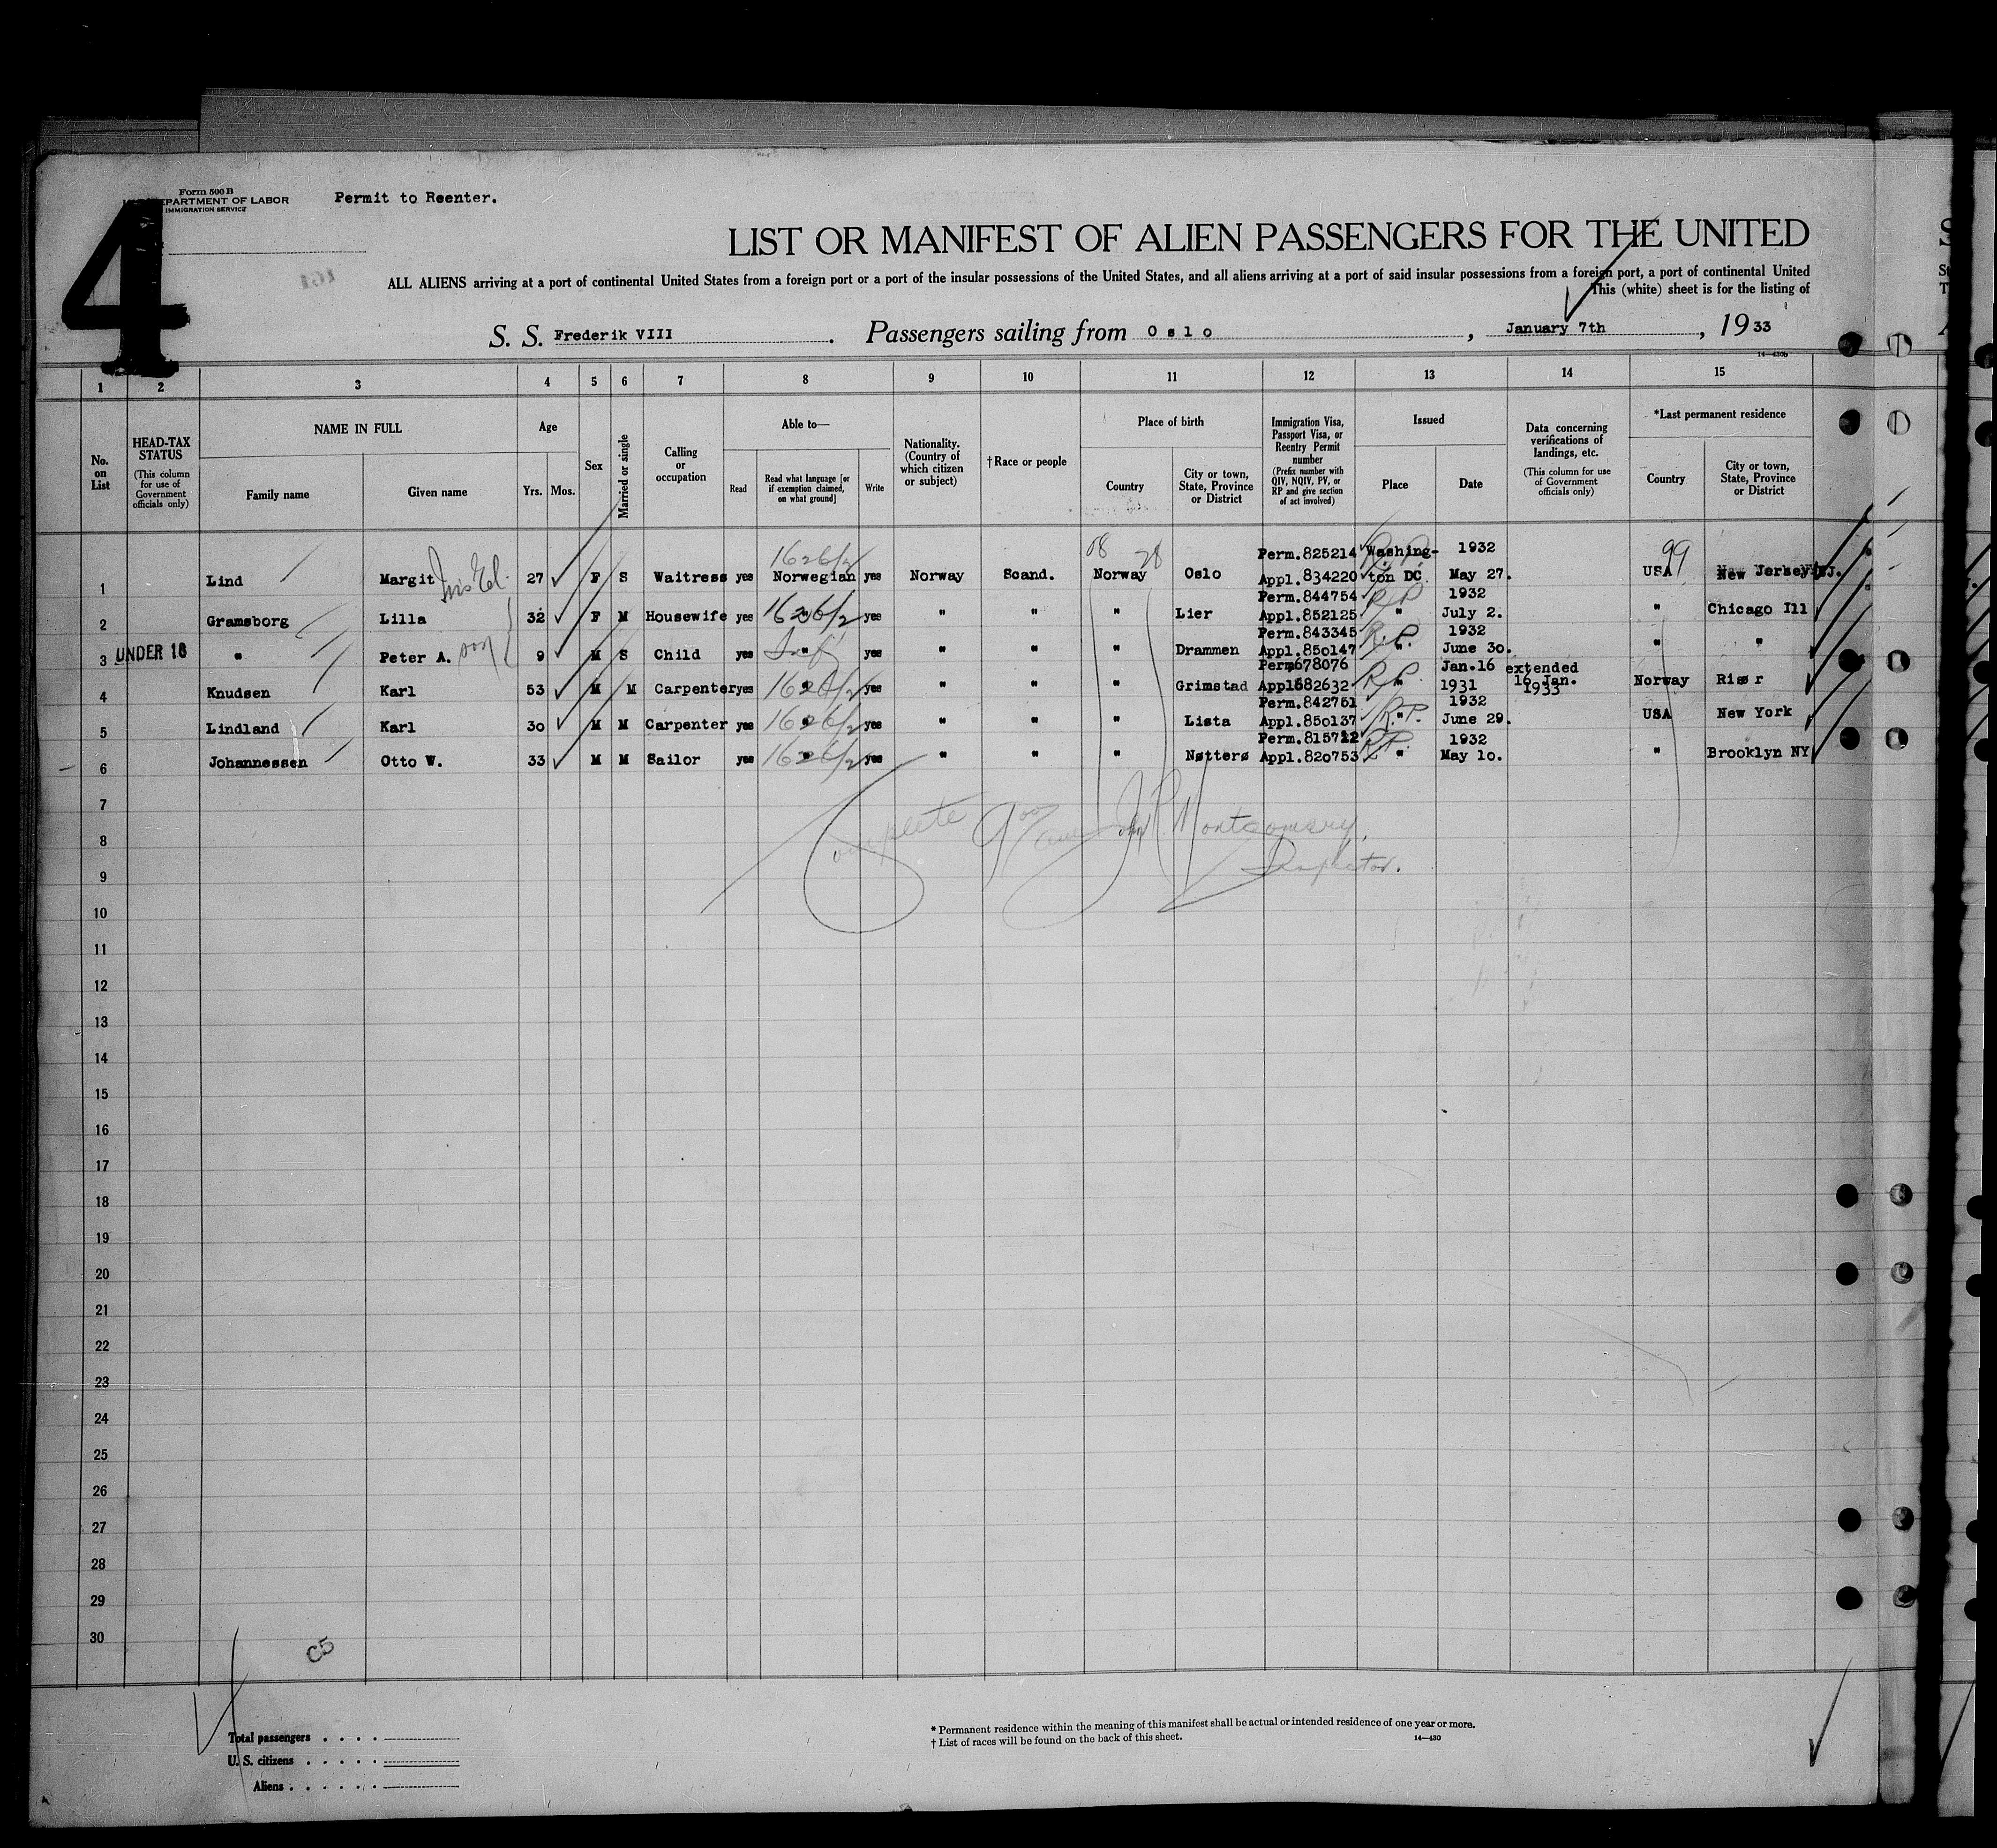 4
Form 500 B
DEPARTMENT OF LABOR
IMMIGRATION SERVICE
Permit to Reenter.
LIST OR MANIFEST OF ALIEN PASSENGERS FOR THE UNITED
ALL ALIENS arriving at a port of continental United States from a foreign port or a port of the insular possessions of the United States, and all aliens arriving at a port of said insular possessions from a foreign port, a port of continental United
This (white) sheet is for the listing of
S. S. Frederik VIII . Passengers sailing from Oslo , January 7th , 1933
14—430b
1 2 3 4 5 6 7 8 9 10 11 12 13 14 15
No. on List
HEAD-TAX STATUS (This column for use of Government officials only)
NAME IN FULL
Family name Given name
Age
Yrs. Mos.
Sex
Married or single
Calling or occupation
Able to—
Read
Read what language [or if exemption claimed, on what ground]
Write
Nationality. (Country of which citizen or subject)
† Race or people
Place of birth
Country
City or town, State, Province or District
Immigration Visa, Passport Visa, or Reentry Permit number (Prefix number with QIV, NQIV, PV, or RP and give section of act involved)
Issued
Place Date
Data concerning verifications of landings, etc. (This column for use of Government officials only)
*Last permanent residence
Country
City or town, State, Province or District
1626/2 08 28 Perm.825214 Washing- R.P. 1932 99
1 Lind Margit 27 F S Waitress yes Norwegian yes Norway Scand. Norway Oslo Appl.834220 ton DC. May 27. USA New Jersey NJ.
Perm.844754 R.P. 1932
2 Gramsborg Lilla 32 F M Housewife yes " 1626/2 yes " " " Lier Appl.852125 " July 2. " Chicago Ill
Perm.843345 R.P. 1932
3 UNDER 16 " Peter A. son 9 M S Child yes " yes " " " Drammen Appl.850147 " June 30. " "
Perm678076 R.P. Jan.16 extended
4 Knudsen Karl 53 M M Carpenter yes " 1626/2 yes " " " Grimstad Appl682632 " 1931 16 Jan. 1933 Norway Risør
Perm.842751 R.P. 1932
5 Lindland Karl 30 M M Carpenter yes " 1626/2 yes " " " Lista Appl.850137 " June 29. USA New York
Perm.815712 R.P. 1932
6 Johannessen Otto W. 33 M M Sailor yes " 1626/2 yes " " " Nøtterø Appl.820753 " May 10. " Brooklyn NY
7
Complete J.R. Montgomery,
8
Inspector.
9
10
11
12
13
14
15
16
17
18
19
20
21
22
23
24
25
26
27
28
29
30
C5
Total passengers . . . .
U. S. citizens . . . . .
Aliens . . . . . .
* Permanent residence within the meaning of this manifest shall be actual or intended residence of one year or more.
† List of races will be found on the back of this sheet.
14—430